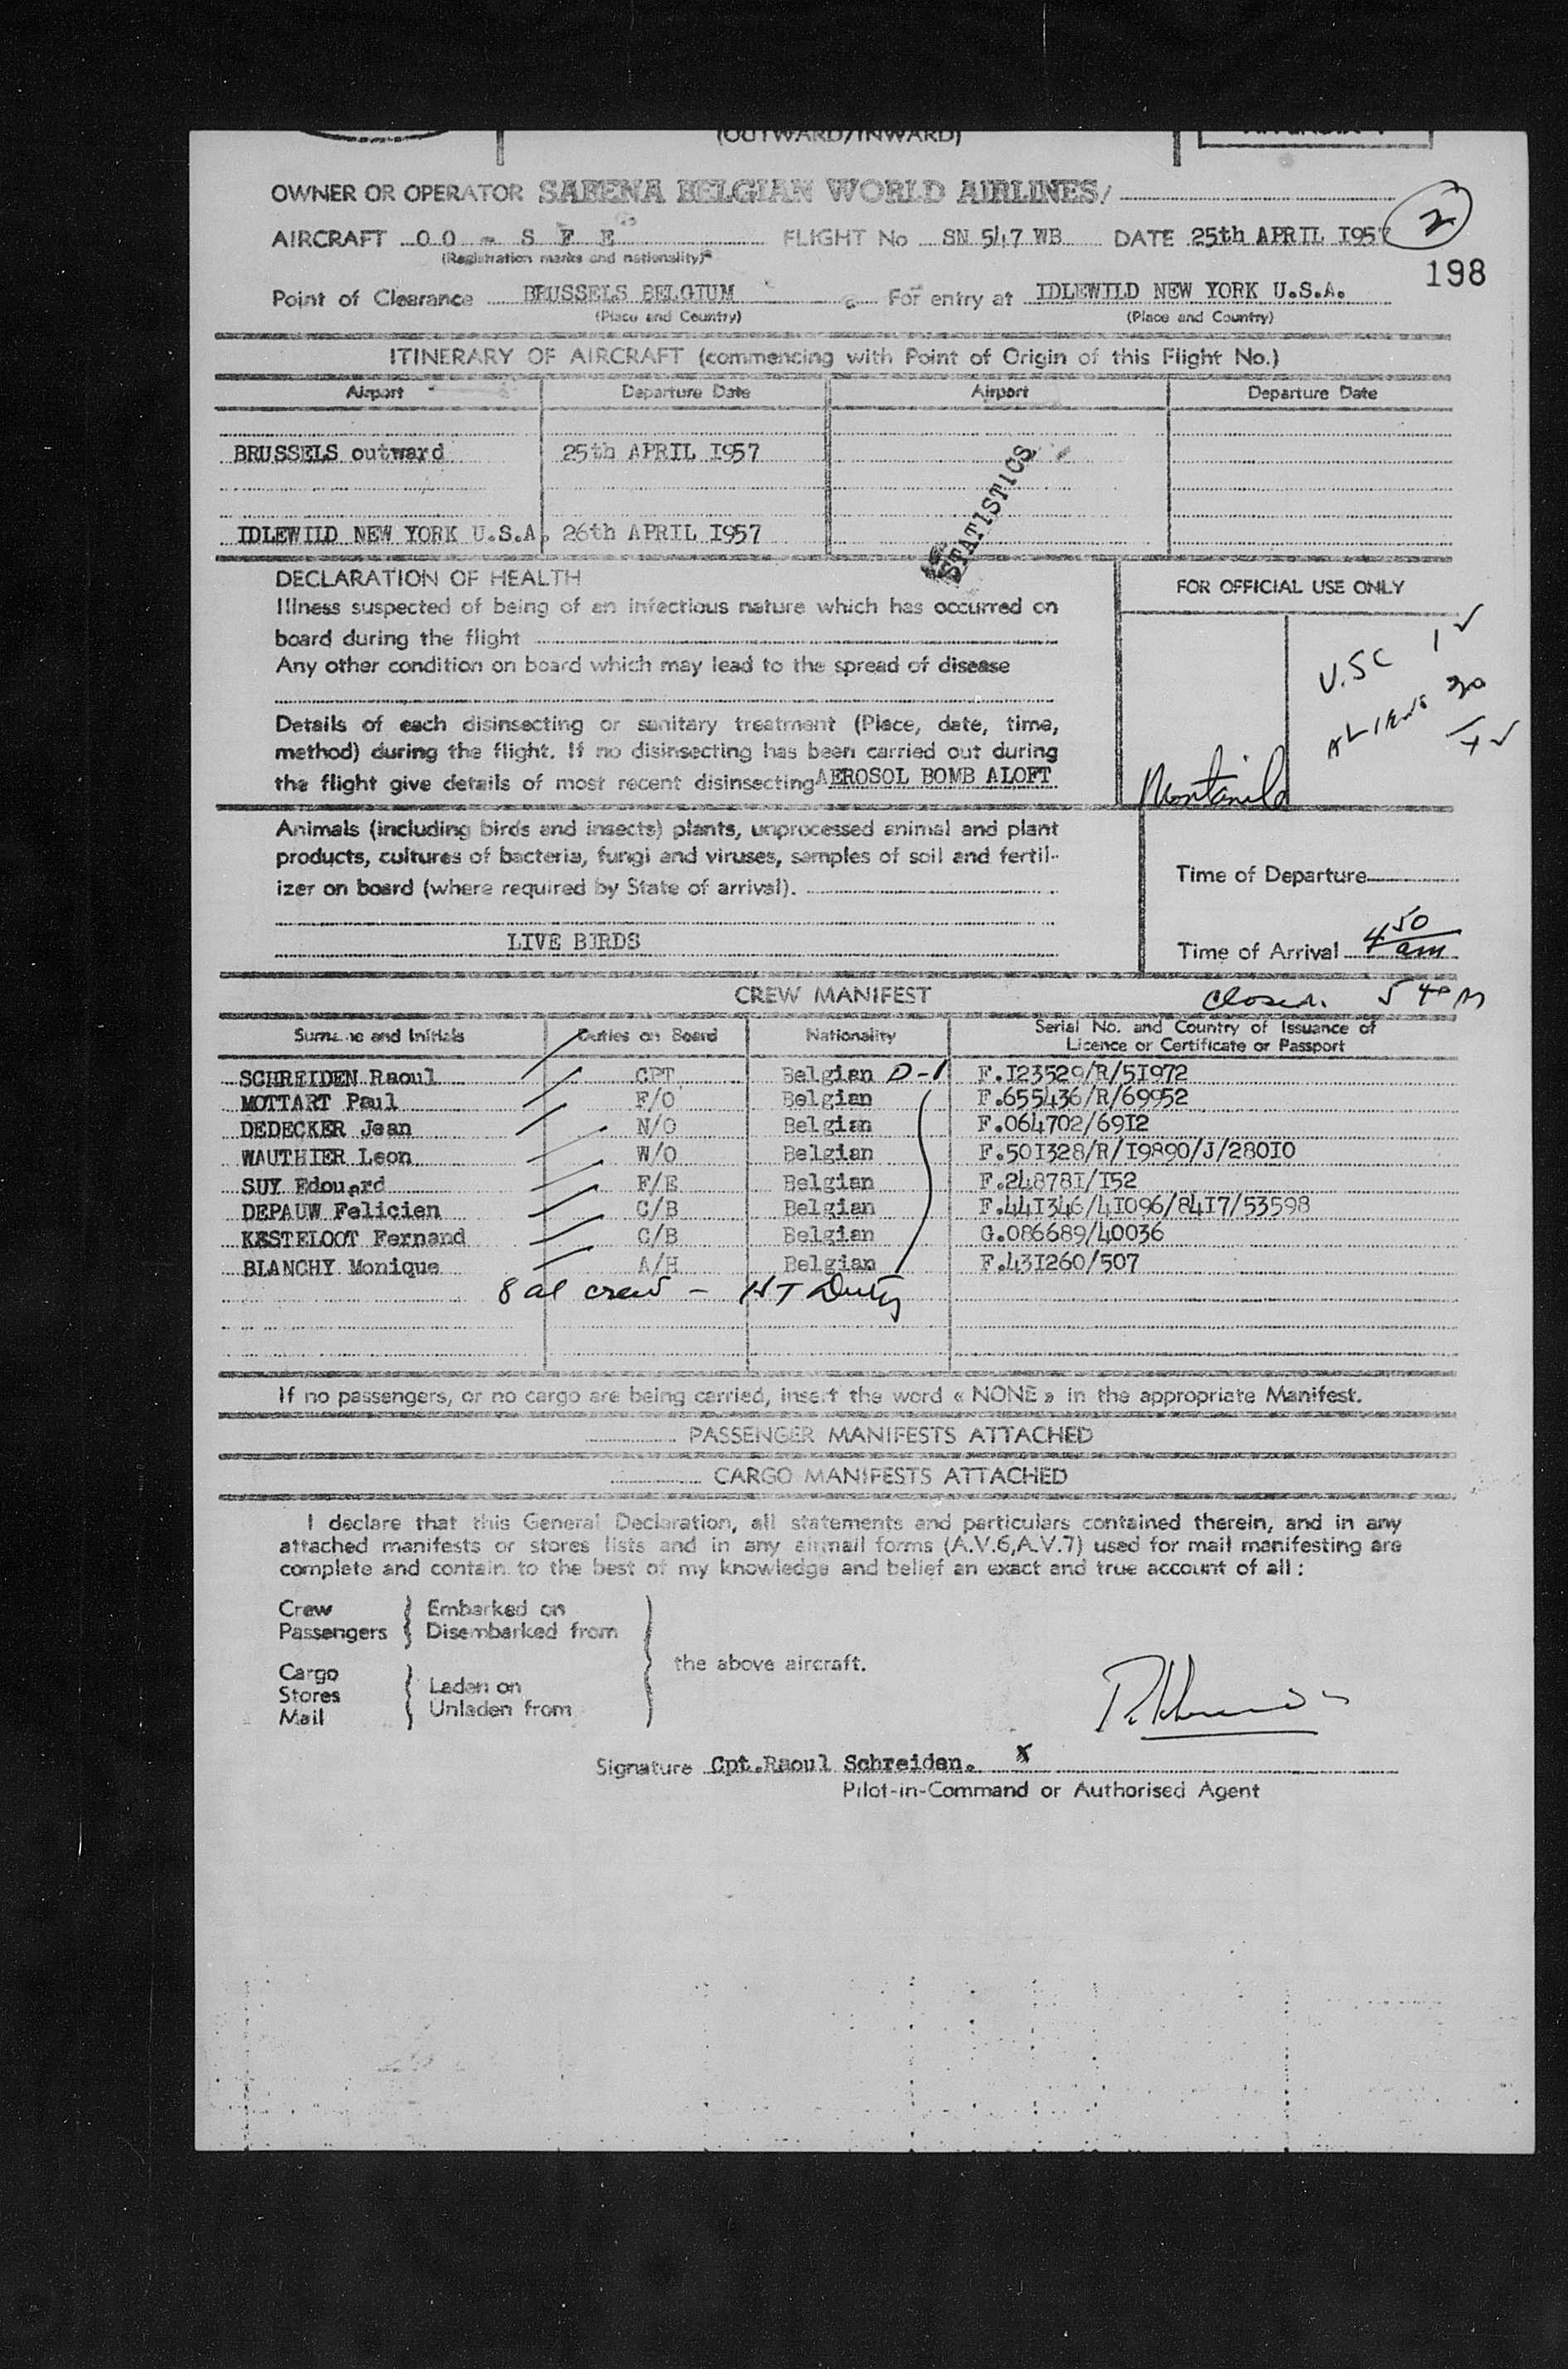 (OUTWARD/INWARD)
OWNER OR OPERATOR SABENA BELGIAN WORLD AIRLINES/
2
AIRCRAFT OO - S F E FLIGHT No SN 547 WB DATE 25th APRIL I957
(Registration marks and nationality)*
198
Point of Clearance BRUSSELS BELGIUM For entry at IDLEWILD NEW YORK U.S.A.
(Place and Country) (Place and Country)
ITINERARY OF AIRCRAFT (commencing with Point of Origin of this Flight No.)
Airport Departure Date Airport Departure Date
BRUSSELS outward 25th APRIL I957
STATISTICS
IDLEWILD NEW YORK U.S.A. 26th APRIL I957
DECLARATION OF HEALTH
FOR OFFICIAL USE ONLY
Illness suspected of being of an infectious nature which has occurred on
board during the flight
U.SC 1
Any other condition on board which may lead to the spread of disease
ALIENS 30
Details of each disinsecting or sanitary treatment (Place, date, time,
method) during the flight. If no disinsecting has been carried out during
the flight give details of most recent disinsecting AEROSOL BOMB ALOFT
Animals (including birds and insects) plants, unprocessed animal and plant
products, cultures of bacteria, fungi and viruses, samples of soil and fertil-
izer on board (where required by State of arrival).
Time of Departure
LIVE BIRDS
Time of Arrival 4 50 am
CREW MANIFEST
Closed. 5 40 M
Surname and Initials Duties on Board Nationality Serial No. and Country of Issuance of
Licence or Certificate or Passport
SCHREIDEN Raoul CPT Belgian D-1 F.I23529/R/5I972
MOTTART Paul F/O Belgian F.655436/R/69952
DEDECKER Jean N/O Belgian F.064702/69I2
WAUTHIER Leon W/O Belgian F.50I328/R/I9890/J/280I0
SUY Edouard F/E Belgian F.24878I/I52
DEPAUW Felicien C/B Belgian F.44I346/4I096/84I7/53598
KESTELOOT Fernand C/B Belgian G.086689/40036
BLANCHY Monique A/H Belgian F.43I260/507
8 al crew - HT Duty
If no passengers, or no cargo are being carried, insert the word « NONE » in the appropriate Manifest.
PASSENGER MANIFESTS ATTACHED
CARGO MANIFESTS ATTACHED
I declare that this General Declaration, all statements and particulars contained therein, and in any
attached manifests or stores lists and in any airmail forms (A.V.6,A.V.7) used for mail manifesting are
complete and contain to the best of my knowledge and belief an exact and true account of all :
Crew Embarked on
Passengers Disembarked from
the above aircraft.
Cargo
Stores Laden on
Mail Unladen from
Signature Cpt.Raoul Schreiden. x
Pilot-in-Command or Authorised Agent